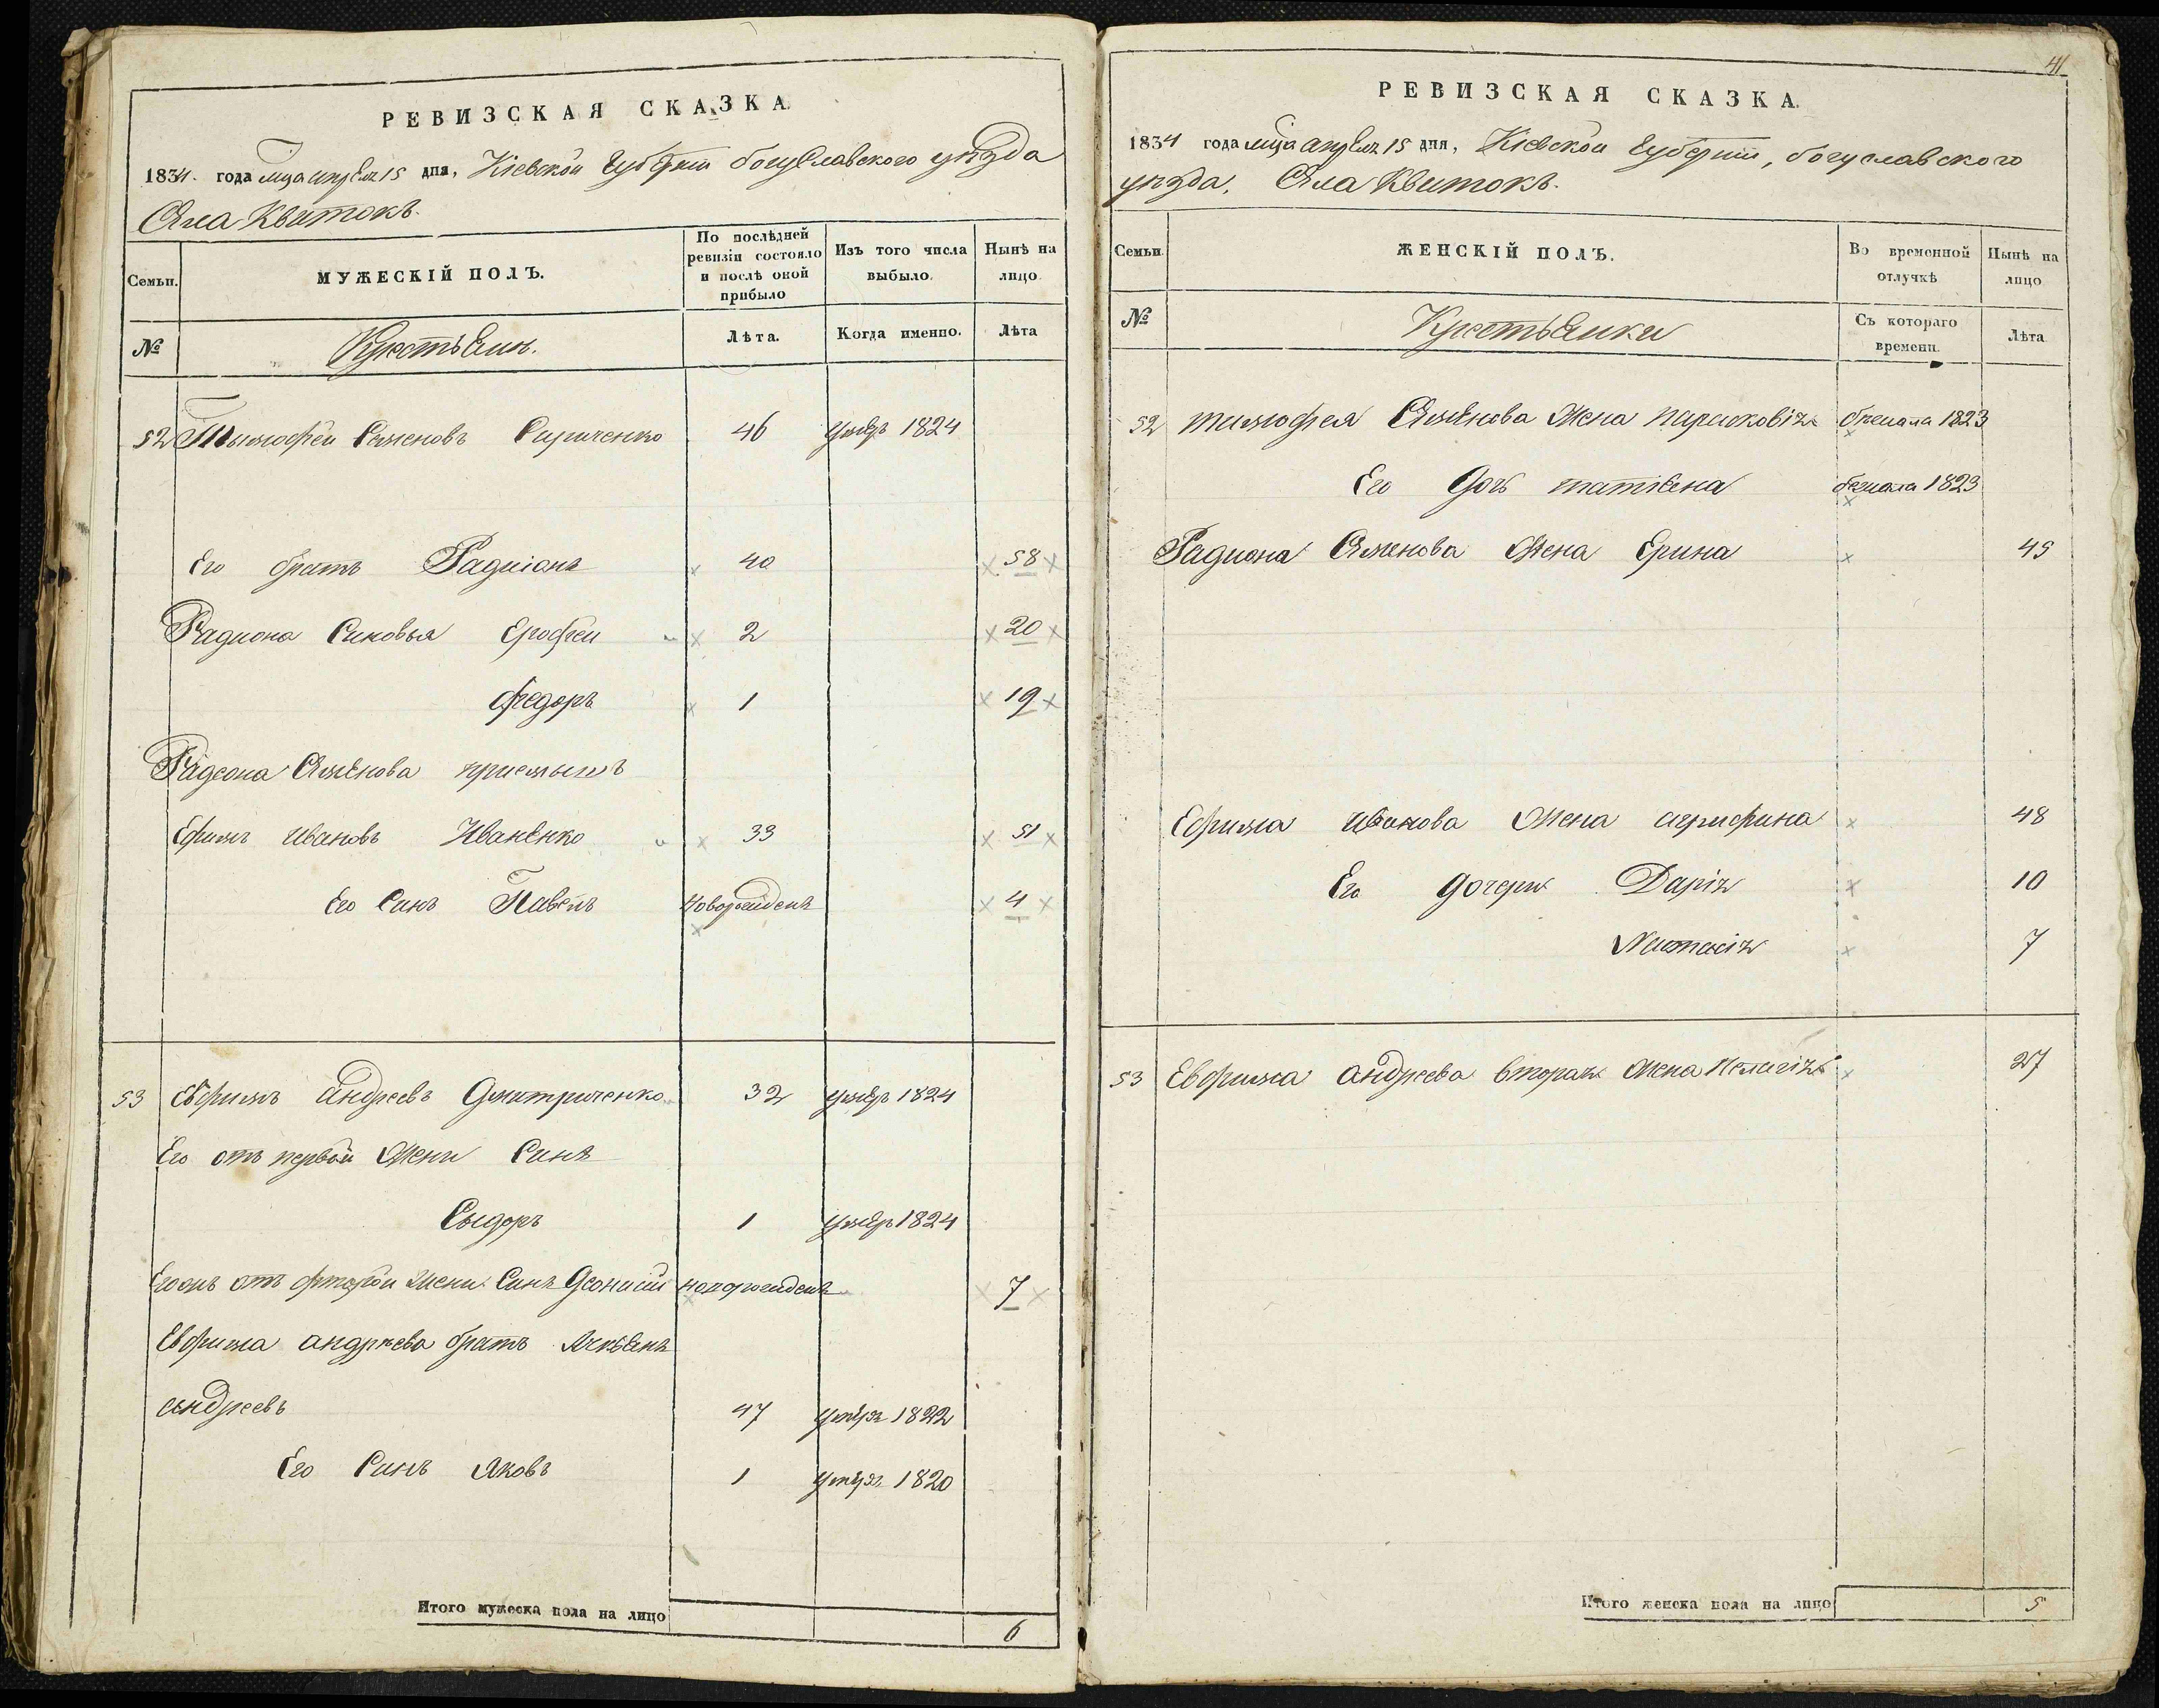 РЕВИЗСКАЯ СКАЗКА.
1834. года мца апреля 15 дня, Кіевской Губерніи богуславского уѣзда
Села Квитокъ.
Семьи. МУЖЕСКІЙ ПОЛЪ. По послѣдней ревизіи состояло и послѣ оной прибыло Изъ того числа выбыло. Нынѣ на лицо
№ Крестьяне. Лѣта. Когда именно. Лѣта
52 Тимофей Семеновъ 46 1824
Его братъ Радионъ 40 58
Радиона Синовья Ерофеи 2 20
федоръ 1 19
Радеона Семенова приемышъ
Ефимъ Ивановъ Иваненко 33 51
Его Синъ Павелъ новорожденъ 4
53 Евфимъ Андреевъ Дмитриченко 32 умеръ 1824
Его отъ первой жени Синъ
Сыдоръ 1 умеръ 1824
отъ фторой жени Синъ Деонисій новорожденъ 7
Евфима андреева братъ
андреевъ 47 умеръ 1822
Его Синъ Яковъ 1 умеръ 1820
Итого мужеска пола на лицо 6
41
РЕВИЗСКАЯ СКАЗКА.
1834 года мца апреля 15 дня, Кіевской Губерніи, богуславского
уѣзда, Села Квитокъ.
Семьи. ЖЕНСКІЙ ПОЛЪ. Во временной отлучкѣ Нынѣ на лицо
№ Крестьянки Съ котораго времени. Лѣта
52 тимофея Семенова Жена бежала 1823
Его Дочь татіяна бежала 1823
Радиона Семенова Жена Ерина 45
Ефима Иванова Жена агрифина 48
Его Дочери Даріи 10
Настасія 7
53 Евфима андреева вторая Жена Пелагія 27
Итого женска пола на лицо 5